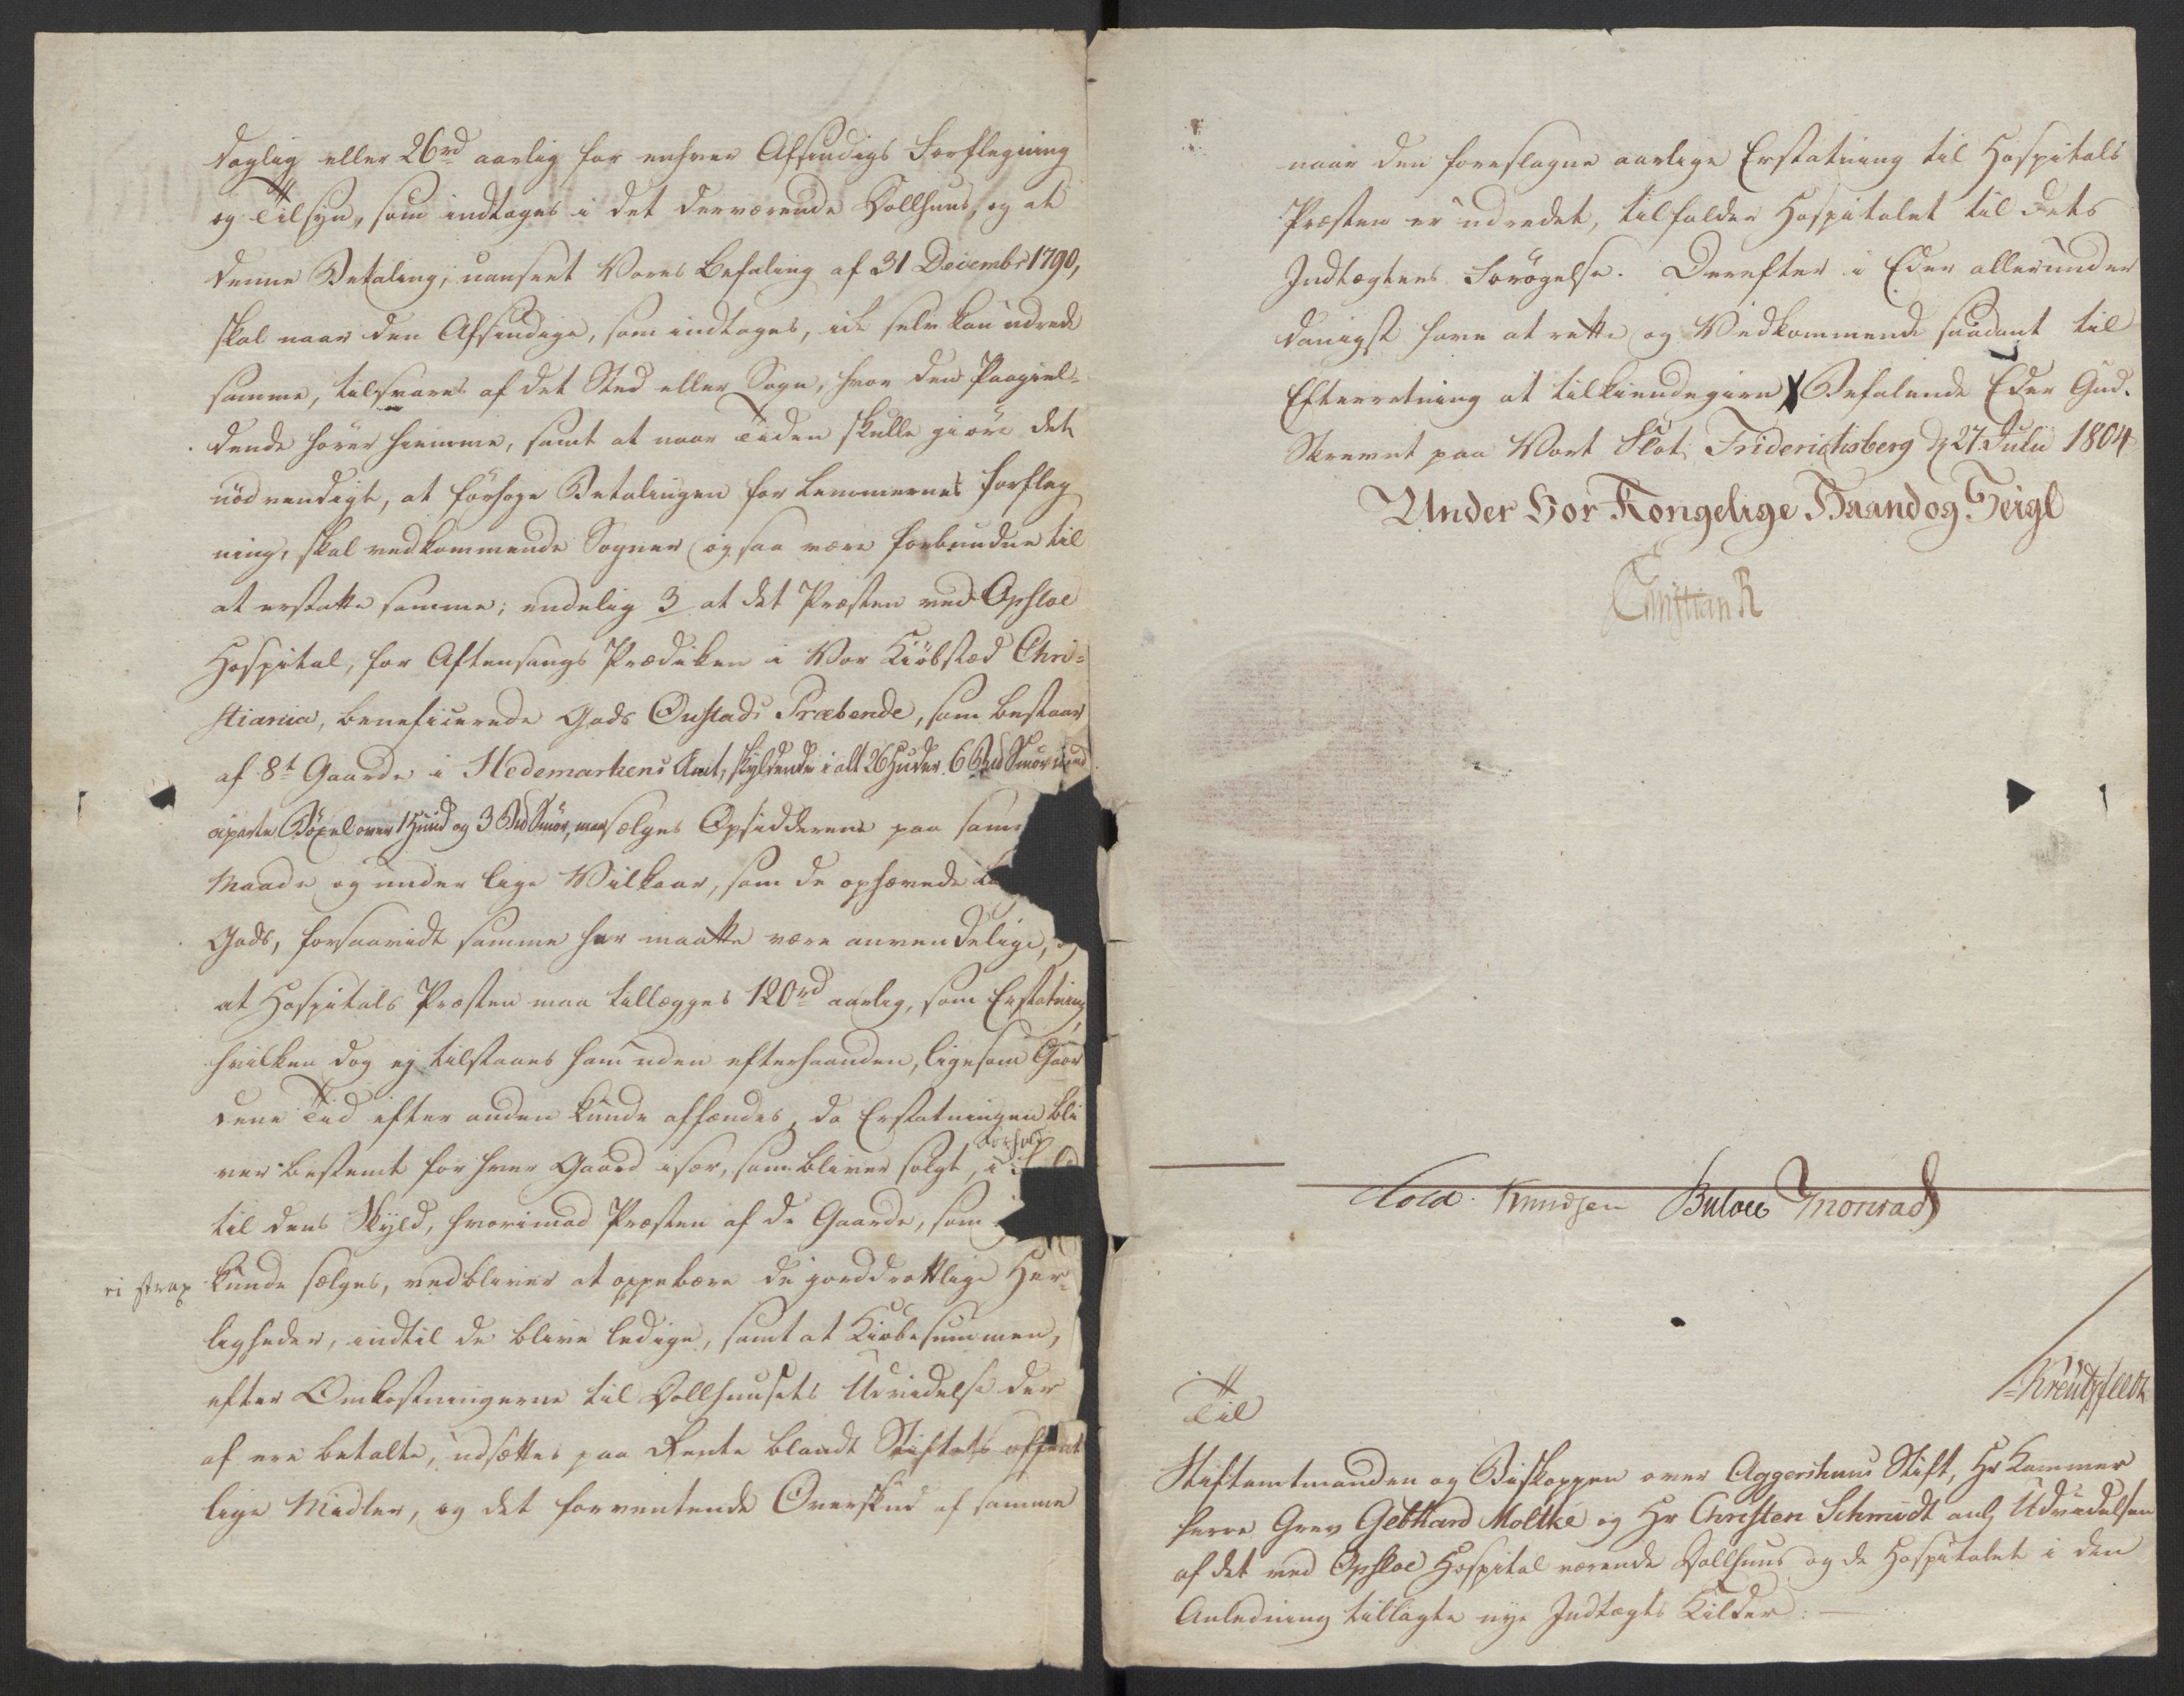 daglig eller 26rd aarlig for enhver Afsindigs Forflegning
og Tilsyn, som indtages i det derværende Dollhuus, og at
denne Betaling, uanseet Vores Befaling af 31 Decembr 1790,
skal naar den Afsindige, som indtages, ick selv kan udrede
samme, tilsvares af det Sted eller Sogn, hvor den Paagiel-
dende hører hiemme, samt at naar Tiden skulle giøre det
nødvendigt, at forhøye Betalingen for Lemmernes Forfleg
ning, skal vedkommende Sogner ogsaa være forbundne til
at erstatte samme; endelig 3 at det Præsten ved Opsloe
Hospital, for Aftensangs Prædiken i Vor Kiøbstæd Chri-
stiania, beneficerede Gods Onstads Præbende, som bestaar
af 8t Gaarde i Hedemarkens Amt, skyldende i alt 26 Huder 6 Bd Smør
aparte Bøxel over 1 Huud og 3 Bd Smør, maa sælges Opsidderne paa sam
Maade og under lige Vilkaar, som de ophævede
Gods, forsaavidt samme her maatte være anvendelige, og
at Hospitals Præsten maa tillægges 120rd aarlig, som Erstatning,
hvilken dog ej tilstaaes ham uden efterhaanden, ligesom Gaar
dene Tid efter anden kunde afhændes, da Erstatningen bli
ver bestemt for hver Gaard især, som bliver solgt, i Forhold
til dens Skyld, hvorimod Præsten af de Gaarde, som
ei strax kunde sælges, vedbliver at oppebære de jorddrottlige Her-
ligheder, indtil de blive ledige, samt at Kiøbesummen,
efter Omkostningerne til Dollhuusets Udvidelse der
af ere betalte, udsættes paa Rente blandt Stiftets offent
lige Midler, og det forventende Overskud af samme
naar den foreslagne aarlige Erstatning til Hospitals
Præsten er udredet, tilfalder Hospitalet til dets
Indtægters Forøgelse. Derefter i Eder allerunder
danigst have at rette og Vedkommende saadant til
Efterretning at tilkiendegive Befalende Eder Gud.
Skrevet paa Vort Slot Friderichsberg d 27 Julii 1804
Under Vor Kongelige Haand og Seigl
Christian R
Cold. Knudsen Bülow Monrad
Kreutzfeldt
Til
Stiftamtmanden og Biskoppen over Aggershuus Stift, Hr Kammer
herre Grev Gebhard Moltke og Hr Christen Schmidt ang Udvidelsen
af det ved Opsloe Hospital værende Dollhuus og de Hospitalet i den
Anledning tillagte nye Indtægts Kilder: